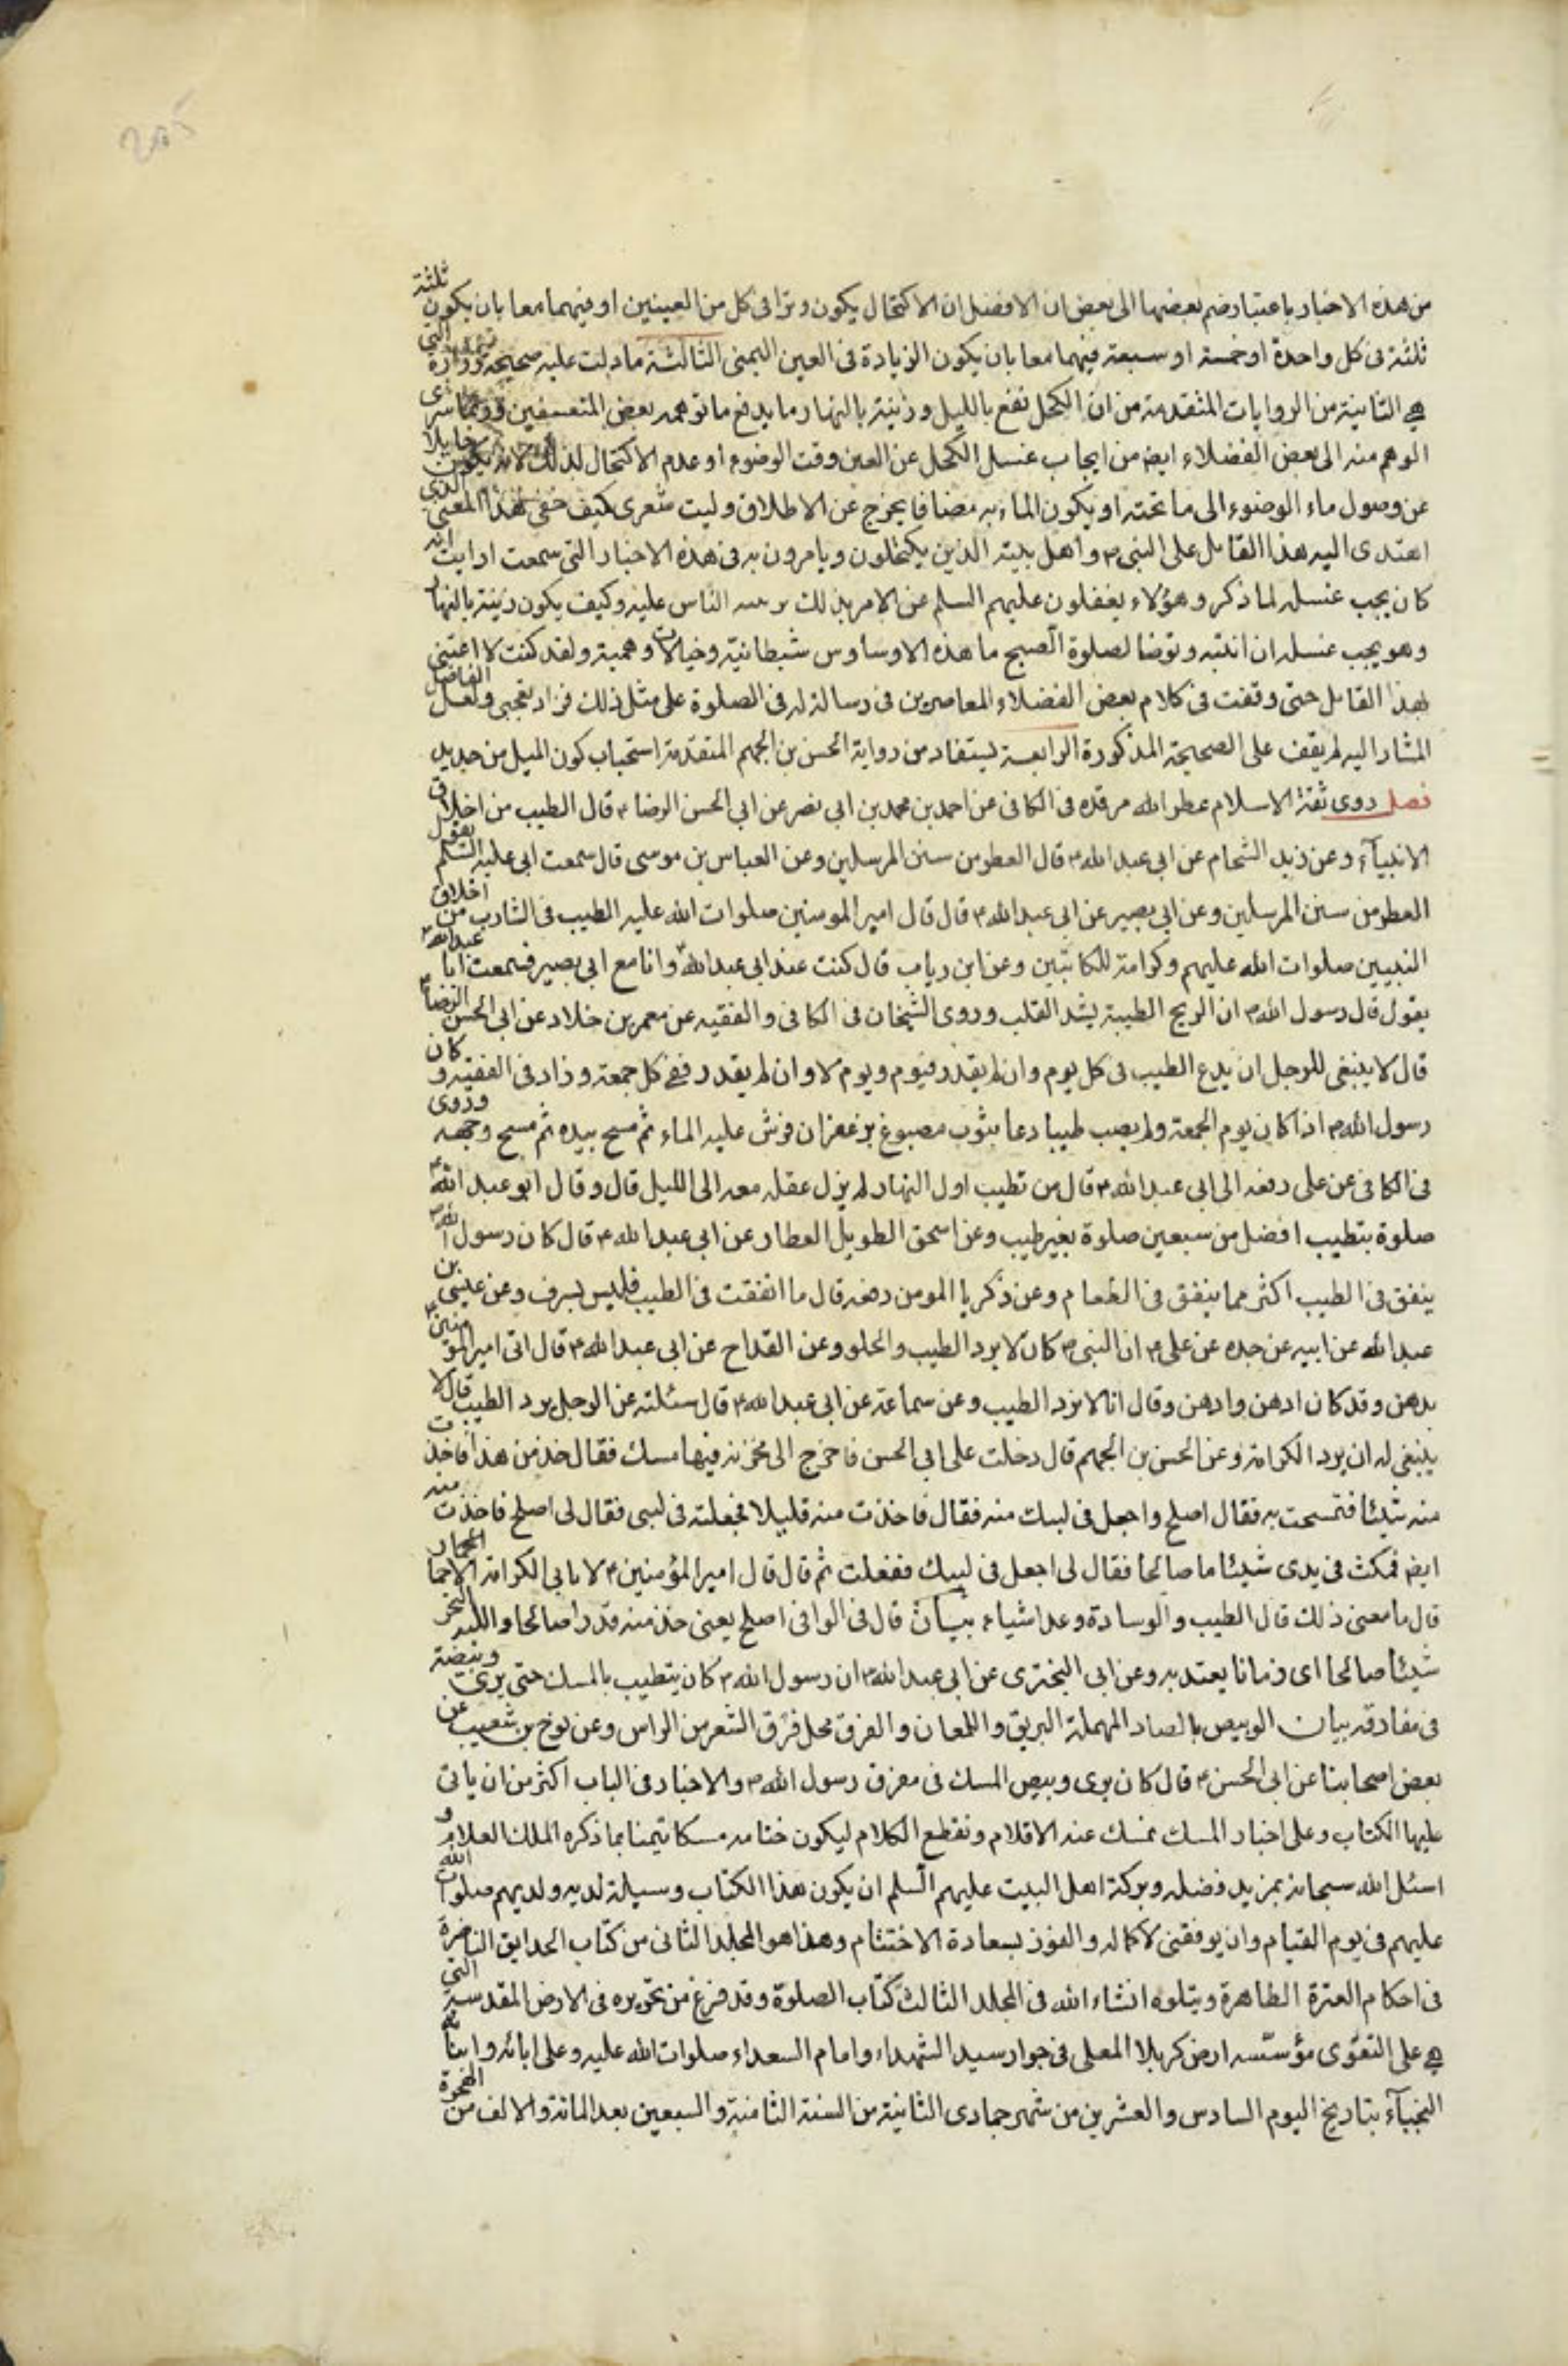 205
من هذه الاخبار باعتبار ضم بعضها الى بعض ان الافضل ان الاكتحال يكون وترا فى كل من العينين او فيهما معا بان يكون ثلثة
ثلثة فى كل واحدة او خمسة او سبعة فيهما معا بان يكون الزيادة فى العين اليمنى الثالثة ما دلت عليه صحيحة زرارة التى
هى الثانية من الروايات المتقدمة من ان الكحل نفع بالليل وزينة بالنهار ما يدفع ما توهمه بعض المتعسفين وربما سرى
الوهم منه الى بعض الفضلاء ايض من ايجاب غسل الكحل عن العين وقت الوضوء او عدم الاكتحال لذلك لانه يكون حايلا
عن وصول ماء الوضوء الى ما تحته او يكون الماء به مضافا يخرج عن الاطلاق وليت شعرى كيف خفى هذا المعنى الذى
اهتدى اليه هذا القائل على النبى ص واهل بيته الذين يكتحلون ويامرون به فى هذه الاخبار التى سمعت ارايت انه
كان يجب غسله لما ذكر وهؤلاء يغفلون عليهم السلم عن الامر بذلك الناس عليه وكيف يكون زينة بالنهار
وهو يجب غسله ان انتبه وتوضا لصلوة الصبح ما هذه الاوساوس شيطانية وخيالات وهمية ولقد كنت لا اعتنى
بهذا القائل حتى وقفت فى كلام بعض الفضلاء المعاصرين فى رسالة له فى الصلوة على مثل ذلك فزاد تعجبى ولعل الفاضل
المشار اليه لم يقف على الصحيحة المذكورة الرابعة يستفاد من رواية الحسن بن الجهم المتقدمة استحباب كون الميل من حديد
فصل روى ثقة الاسلام عطر الله مرقده فى الكافى عن احمد بن محمد بن ابى نصر عن ابى الحسن الرضا ع قال الطيب من اخلاق
الانبيآء وعن زيد الشحام عن ابى عبد الله ع قال العطر من سنن المرسلين وعن العباس بن موسى قال سمعت ابى عليه السلم يقول
العطر من سنن المرسلين وعن ابى بصير عن ابى عبد الله ع قال قال امير المومنين صلوات الله عليه الطيب فى الشارب من اخلاق
النبيين صلوات الله عليهم وكرامة للكاتبين وعن ابن رياب قال كنت عند ابى عبد الله ع وانا مع ابى بصير فسمعت ابا عبد الله ع
يقول قال رسول الله ص ان الريح الطيبة يشد القلب وروى الشيخان فى الكافى والفقيه عن معمر بن خلاد عن ابى الحسن الرضا ع
قال لا ينبغى للرجل ان يدع الطيب فى كل يوم وان لم يقدر فيوم ويوم لا وان لم يقدر ففى كل جمعة وزاد فى الفقيه و كان
رسول الله ص اذا كان يوم الجمعة ولم يصب طيبا دعا بثوب مصبوغ بزعفران فرش عليه الماء ثم مسح بيده ثم مسح وجهه وروى
فى الكافى عن على رفعه الى ابى عبد الله ع قال من تطيب اول النهار لم يزل عقله معه الى الليل قال وقال ابو عبد الله ع
صلوة بتطيب افضل من سبعين صلوة بغير طيب وعن اسحق الطويل العطار عن ابى عبد الله ع قال كان رسول الله ص
ينفق فى الطيب اكثر مما ينفق فى الطعام وعن زكريا المومن رفعه قال ما انفقت فى الطيب فليس بسرف وعن عيسى بن
عبد الله عن ابيه عن جده عن على ع ان النبى ص كان لا يرد الطيب والحلو وعن القداح عن ابى عبد الله ع قال اتى امير المومنين ع
بدهن وقد كان ادهن وادهن وقال انا لا نرد الطيب وعن سماعة عن ابى عبد الله ع قال سئلته عن الرجل يرد الطيب قال لا
ينبغى له ان يرد الكرامة وعن الحسن بن الجهم قال دخلت على ابى الحسن فاخرج الى مخزنه فيها مسك فقال خذ من هذا فاخذت
منه شيئا فتمسحت به فقال اصلح واجعل فى لببك منه فقال فاخذت منه قليلا فجعلته فى لببى فقال لى اصلح فاخذت منه
ايض فمكث فى يدى شيئا ما صالحا فقال لى اجعل فى لببك ففعلت ثم قال قال امير المؤمنين ع لا يابى الكرامة الا حمار
قال ما معنى ذلك قال الطيب والوسادة وعد اشياء بيـان قال فى الوافى اصلح يعنى خذ منه قدرا صالحا واللبه النحر
شيئا صالحا اى زمانا يعتد به وعن ابى البخترى عن ابى عبد الله ع ان رسول الله ص كان يتطيب بالمسك حتى يرى وبيصه
فى مفارقه بيان الوبيص بالصاد المهملة البريق واللمعان والفرق محل فرق الشعر من الراس وعن نوح بن شعيب عن
بعض اصحابنا عن ابى الحسن ع قال كان يرى وبيص المسك فى مفرق رسول الله ص والاخبار فى الباب اكثر من ان ياتى
عليها الكتاب وعلى اخبار المسك نمسك عنه الاقلام ونقطع الكلام ليكون ختامه مسكا تيمنا بما ذكره الملك العلام و
اسئل الله سبحانه بمزيد فضله وبركة اهل البيت عليهم السلم ان يكون هذا الكتاب وسيلة لديه ولديهم صلوات الله
عليهم فى يوم القيام وان يوفقنى لاكماله والفوز بسعادة الاختتام وهذا هو المجلد الثانى من كتاب الحدايق الناضرة
فى احكام العترة الطاهرة ويتلوه انشاء الله فى المجلد الثالث كتاب الصلوة وقد فرغ من تحريره فى الارض المقدسة التى
هى على التقوى مؤسّسه ارض كربلا المعلى فى جوار سيد الشهداء وامام السعداء صلوات الله عليه وعلى ابائه وابنائه
النجبآء بتاريخ اليوم السادس والعشرين من شهر جمادى الثانية من السنة الثامنة والسبعين بعد المائة والالف من الهجرة